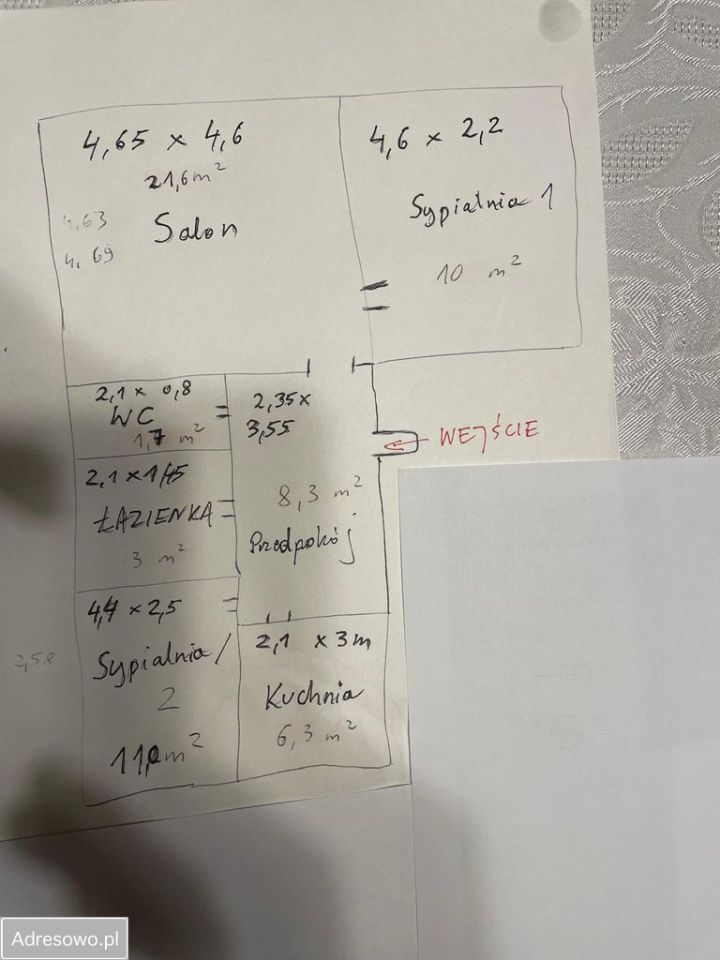 4,65 x 4,6
21,6 m²
4,63
4,69
Salon
4,6 x 2,2
Sypialnia 1
10 m²
2,1 x 0,8
WC
1,7 m²
2,35 x
3,55
WEJŚCIE
8,3 m²
Przedpokój
2,1 x 1,45
ŁAZIENKA
3 m²
4,4 x 2,5
Sypialnia
2
11,0 m²
2,58
2,1 x 3m
Kuchnia
6,3 m²
Adresowo.pl